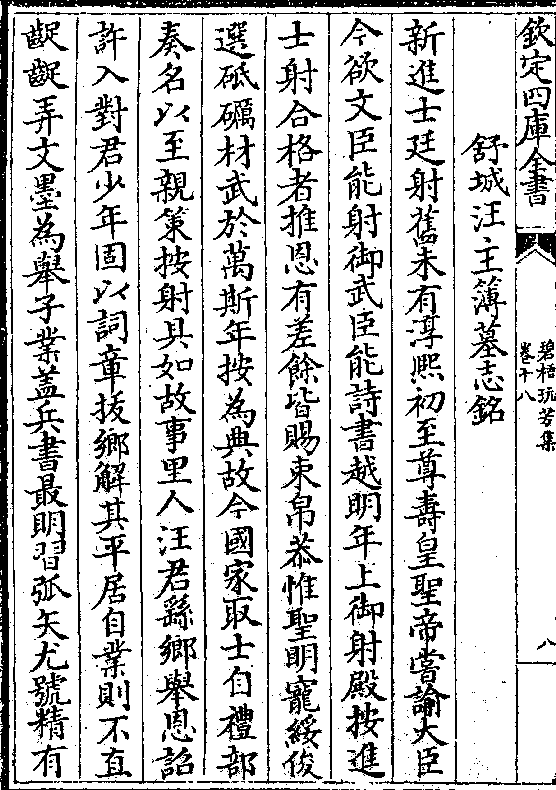 欽定四庫全書
碧梧玩芳集
卷十八
八
舒城汪主簿墓志銘
新進士廷射舊未有淳熙初至尊壽皇聖帝嘗諭大臣
今欲文臣能射御武臣能詩書越明年上御射殿按進
士射合格者推恩有差餘皆賜束帛恭惟聖明寵綏俊
選砥礪材武於萬斯年按為典故今國家取士自禮部
奏名以至親策按射具如故事里人汪君繇鄉舉恩詔
許入對君少年固以詞章拔鄉解其平居自業則不直
齪齪弄文墨為舉子業蓋兵書最明習弧矢尤號精有